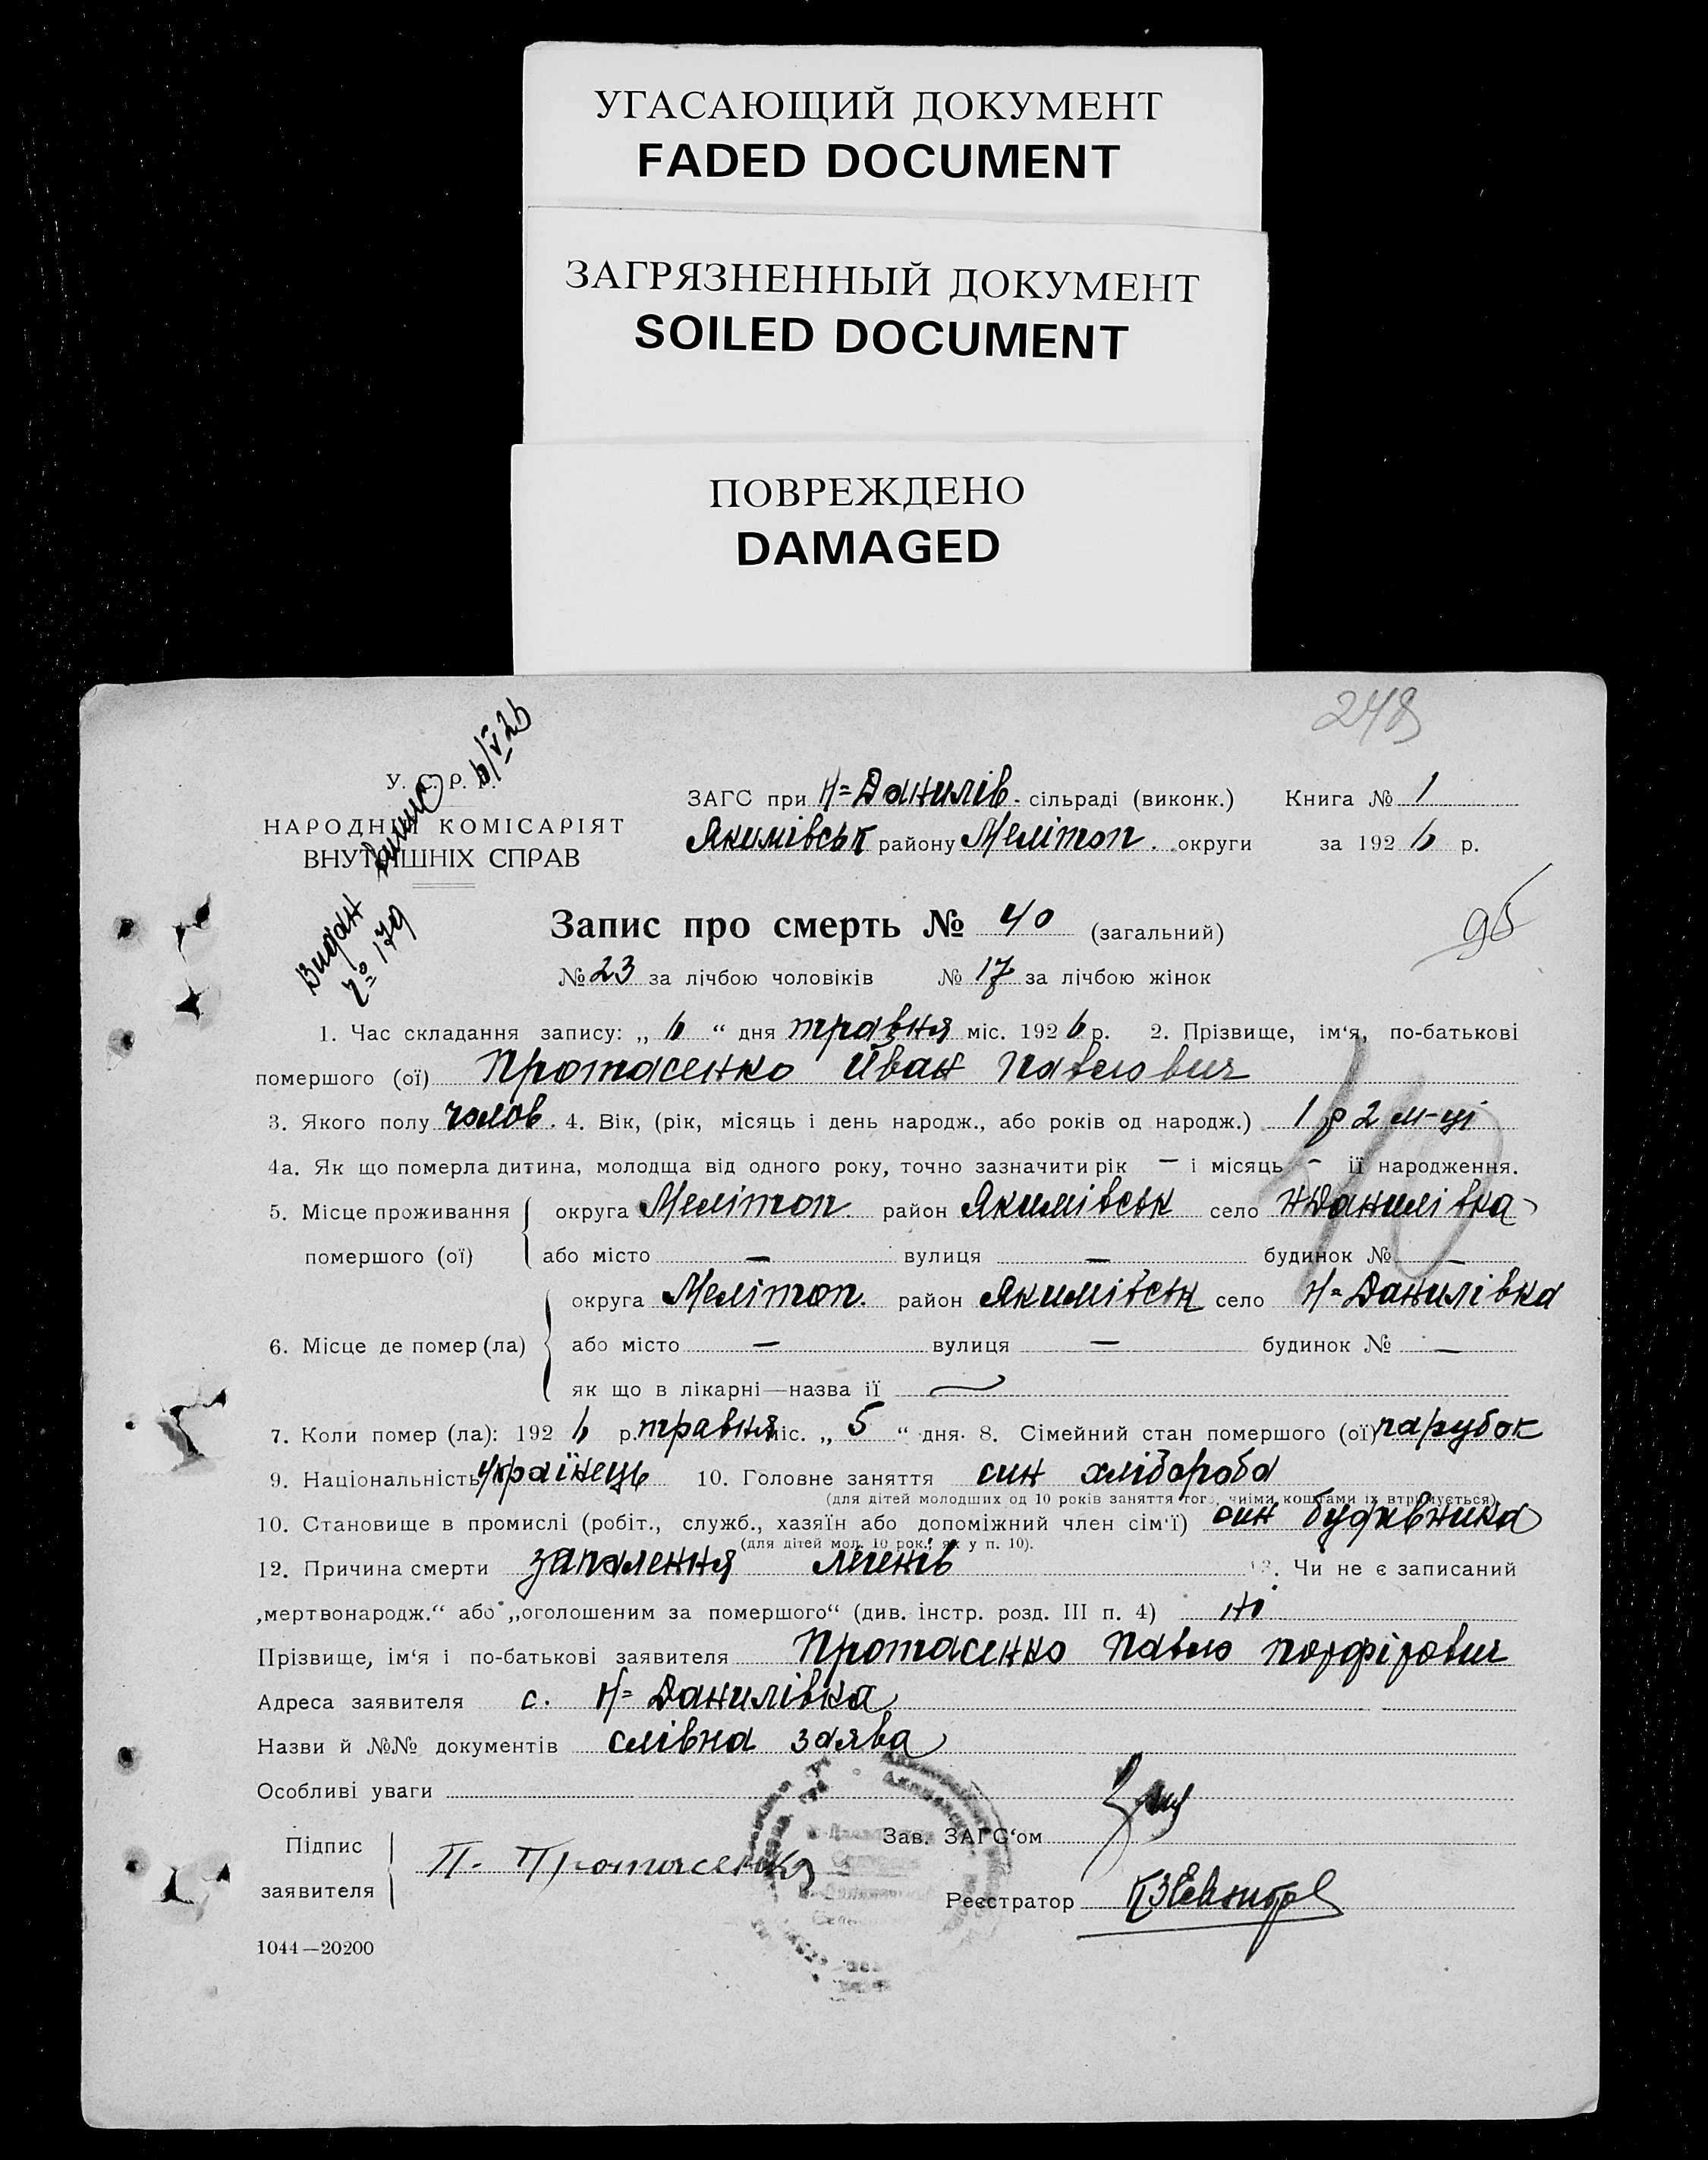 УГАСАЮЩИЙ ДОКУМЕНТ
FADED DOCUMENT
ЗАГРЯЗНЕННЫЙ ДОКУМЕНТ
SOILED DOCUMENT
ПОВРЕЖДЕНО
DAMAGED
248
У. С. Р. Р.
НАРОДНІЙ КОМІСАРІЯТ
ВНУТРІШНІХ СПРАВ
Видан випис 6/V 26
№ 179
ЗАГС при Н=Данилів. сільраді (виконк.) Книга № 1
Якимівськ району Мелітоп. округи за 1926 р.
95
Запис про смерть № 40 (загальний)
№ 23 за лічбою чоловіків № 17 за лічбою жінок
1. Час складання запису: „ 6 “ дня травня міс. 1926 р. 2. Прізвище, ім‘я, по-батькові
помершого (ої) Протасенко Йван Павлович
3. Якого полу чолов. 4. Вік, (рік, місяць і день народж., або років од народж.) 1 р 2 м-ці
4а. Як що померла дитина, молодща від одного року, точно зазначити рік — і місяць — її народження.
40
5. Місце проживання помершого (ої) округа Мелітоп. район Якимівськ село Н=Данилівка
або місто — вулиця — будинок № —
6. Місце де помер (ла) округа Мелітоп. район Якимівськ село Н=Данилівка
або місто — вулиця — будинок № —
як що в лікарні—назва її —
7. Коли помер (ла): 1926 р. травня міс. „ 5 “ дня. 8. Сімейний стан помершого (ої) парубок
9. Національність Українець 10. Головне заняття син хлібороба
(для дітей молодших од 10 років заняття того, чиїми коштами їх втримується)
10. Становище в промислі (робіт., служб., хазяїн або допоміжний член сім‘ї) син будівника
(для дітей мол. 10 рок., як у п. 10).
12. Причина смерти запалення легенів 13. Чи не є записаний
„мертвонародж.“ або „оголошеним за помершого“ (див. інстр. розд. III п. 4) ні
Прізвище, ім‘я і по-батькові заявителя Протасенко Павло Порфірович
Адреса заявителя с. Н=Данилівка
Назви й №№ документів слівна заява
Особливі уваги
Підпис заявителя П. Протасенко
Зав. ЗАГС‘ом
Реєстратор
1044—20200